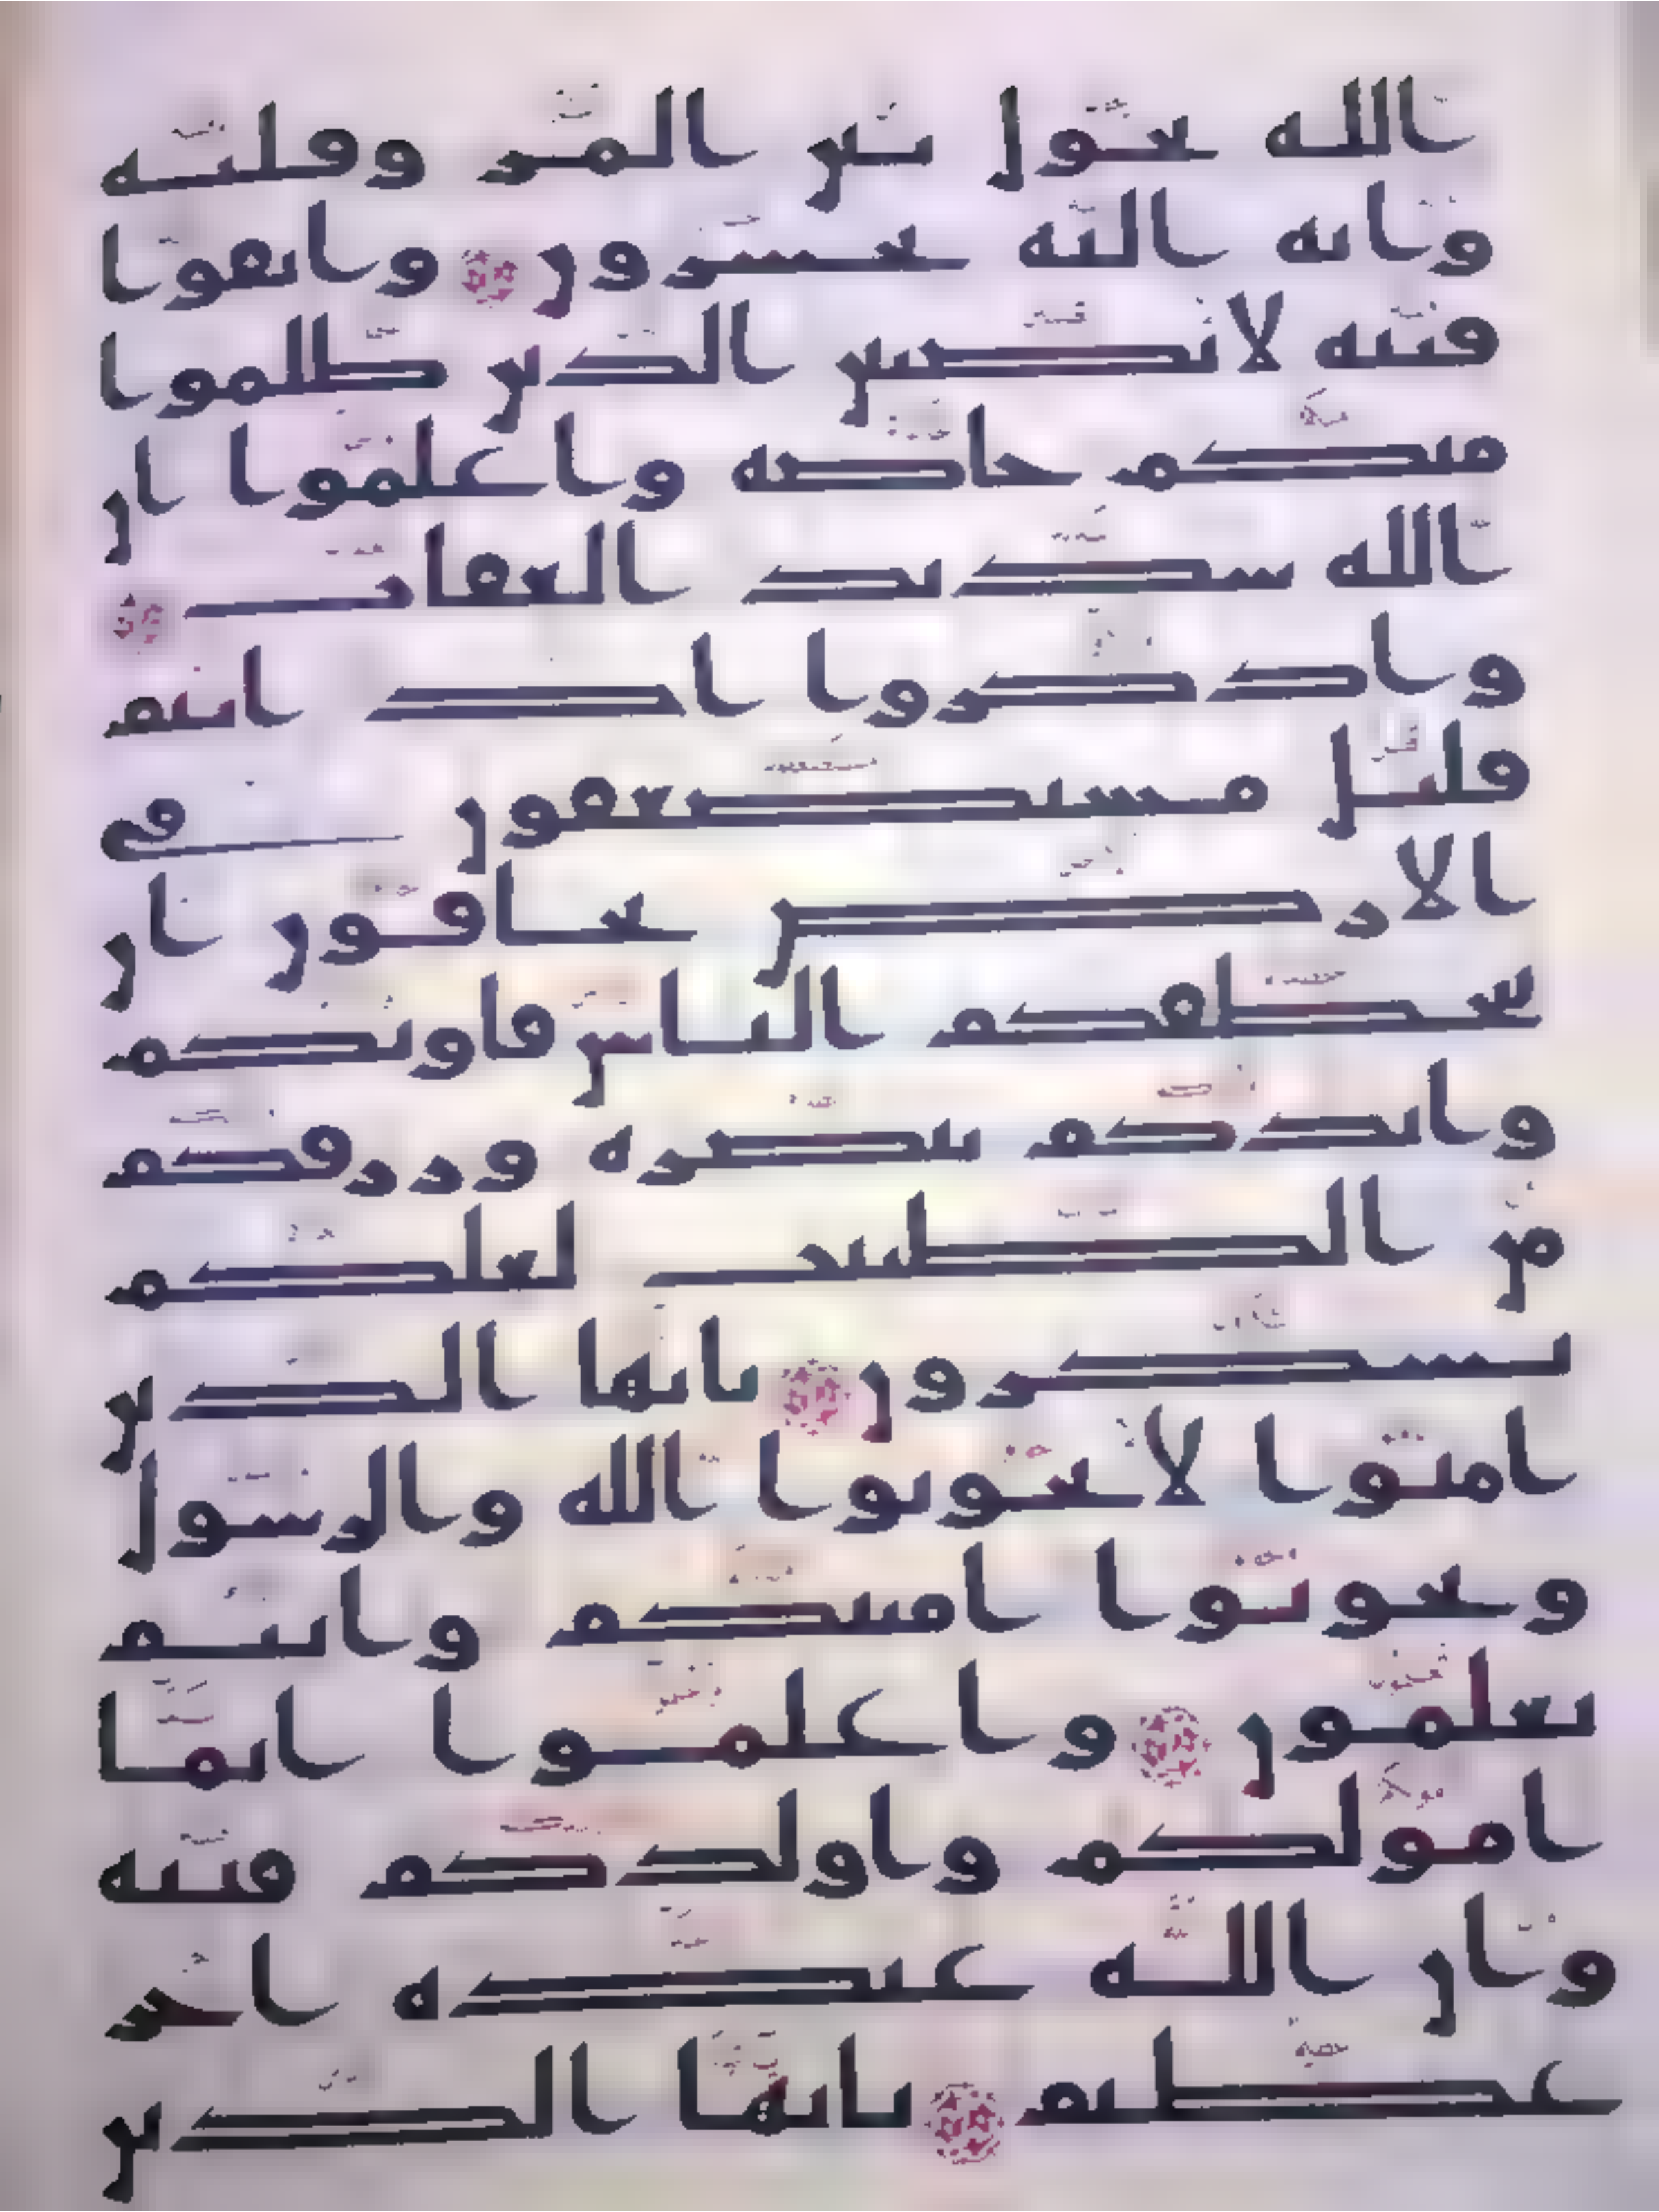 الله يحول بين المر وقلبه
وانه اليه تحشرون واتقوا
فتنه لا تصيبن الذين ظلموا
منكم خاصه واعلموا ان
الله شديد العقاب
واذكروا اذ انتم
قليل مستضعفون في
الارض تخافون ان
يتخطفكم الناس فاويكم
وايدكم بنصره ورزقكم
من الطيبت لعلكم
تشكرون يايها الذين
امنوا لا تخونوا الله والرسول
وتخونوا امنتكم وانتم
تعلمون واعلموا انما
امولكم واولدكم فتنه
وان الله عنده اجر
عظيم يايها الذين